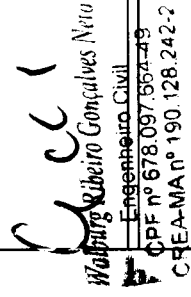 Walburg Ribeiro Gonçalves Neto
Engenheiro Civil
CPF nº 678.097.664-49
CREA-MA nº 190.128.242-2